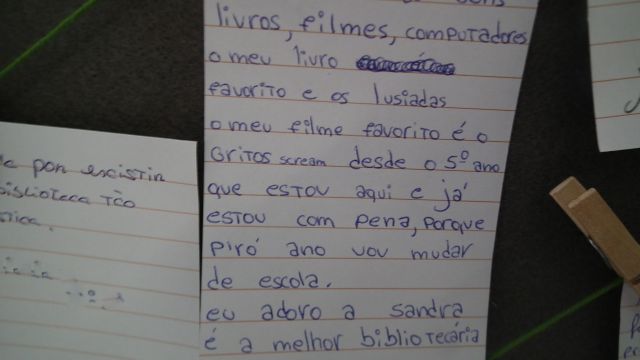 livros, filmes, computadores
o meu livro
favorito e os lusiadas
o meu filme favorito é o
Gritos scream desde o 5º ano
que estou aqui e já
estou com pena, porque
piró ano vou mudar
de escola.
eu adoro a sandra
é a melhor bibliotecária
por existir
biblioteca tão